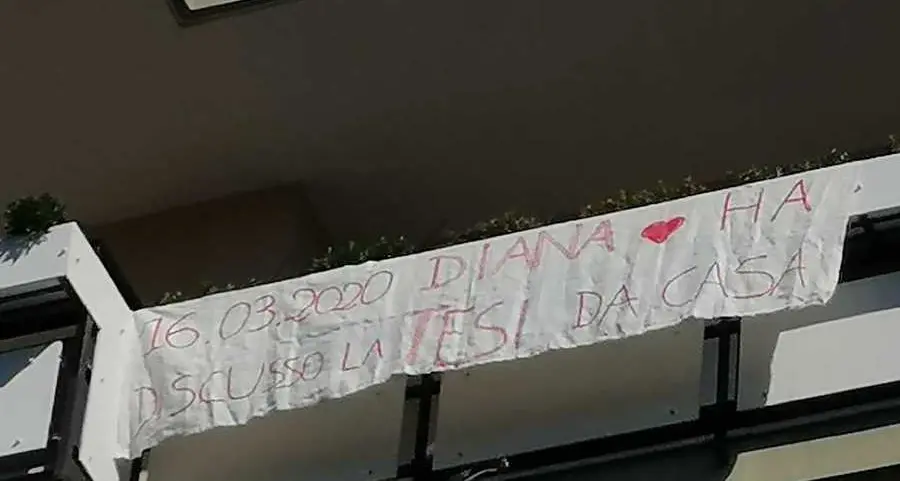 16.03.2020 DIANA ❤ HA
DISCUSSO LA TESI DA CASA